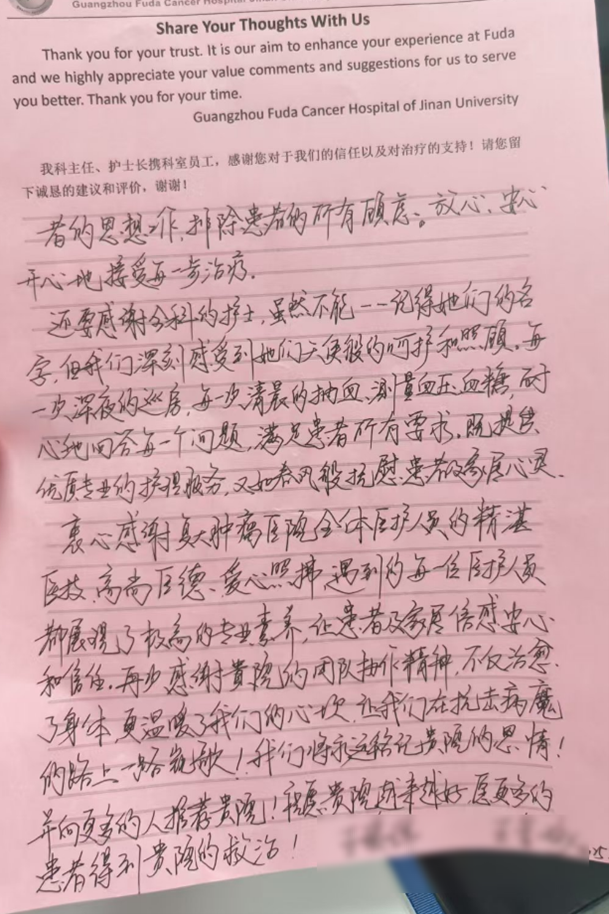 Guangzhou Fuda Cancer Hospital of Jinan
Share Your Thoughts With Us
Thank you for your trust. It is our aim to enhance your experience at Fuda
and we highly appreciate your value comments and suggestions for us to serve
you better. Thank you for your time.
Guangzhou Fuda Cancer Hospital of Jinan University
我科主任、护士长携科室员工，感谢您对于我们的信任以及对治疗的支持！请您留
下诚恳的建议和评价，谢谢！
者的思想工作，排除患者的所有顾虑。放心、安心
开心地接受每一步治疗。
还要感谢全科的护士，虽然不能一一记得她们的名
字，但我们深刻感受到她们天使般的呵护和照顾。每
一次深夜的巡房，每一次清晨的抽血、测量血压、血糖，耐
心地回答每一个问题，满足患者所有要求。既提供
优质专业的护理服务，又如春风般抚慰患者及家属心灵。
衷心感谢复大肿瘤医院全体医护人员的精湛
医技、高尚医德、爱心照拂，遇到的每一位医护人员
都展现了极高的专业素养，让患者及家属倍感安心
和信任。再次感谢贵院的团队协作精神，不仅治愈
了身体，更温暖了我们的心坎，让我们在抗击病魔
的路上一路凯歌！我们将永远铭记贵院的恩情！
并向更多的人推荐贵院！祝愿贵院越来越好，医更多的
患者得到贵院的救治！